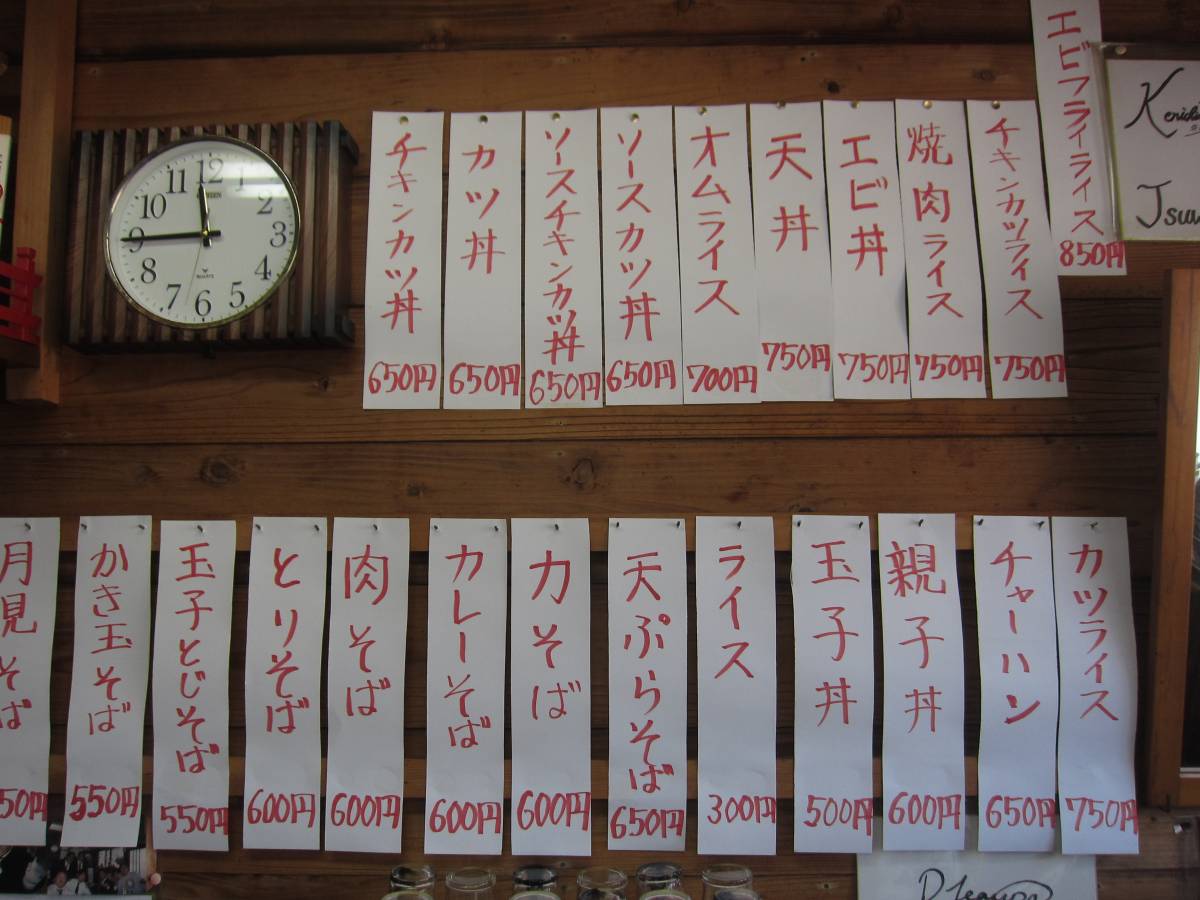 チキンカツ丼
650円
カツ丼
650円
ソースチキンカツ丼
650円
ソースカツ丼
650円
オムライス
700円
天丼
750円
エビ丼
750円
焼肉ライス
750円
チキンカツライス
750円
エビフライライス
850円
月見そば
50円
かき玉そば
550円
玉子とじそば
550円
とりそば
600円
肉そば
600円
カレーそば
600円
力そば
600円
天ぷらそば
650円
ライス
300円
玉子丼
500円
親子丼
600円
チャーハン
650円
カツライス
750円
12
1
2
3
4
5
6
7
8
9
10
11